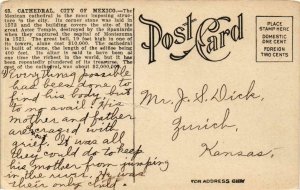 63. CATHEDRAL, CITY OF MEXICO.—The
Mexican cathedral is the most imposing
structure in the city. Its corner stone was laid in
1573 and the building covers the site of the
great Aztec Temple, destroyed by the Spaniards
when they captured the capital of Montezuma
The great bell, 19 feet high, which is in one of
its towers, alone cost $10,000. The cathedral
is built of stone, the length of the edifice being
400 feet. Its altar is said to have been at
one time the richest in the world, but it has
been repeatedly plundered of its treasure. The
cost of the cathedral, was about $2,000,000.
Everything possible
has been done to
find his body, but
to no avail! His
mother and father
are crazed with
grief. It was all
they could do to keep
his mother from jumping
in the river. He was
their only child.
Post Card
PLACE
STAMP HERE
DOMESTIC
ONE CENT
FOREIGN
TWO CENTS
Mr. J. S. Dick,
Zurich,
Kansas.
FOR ADDRESS ONLY